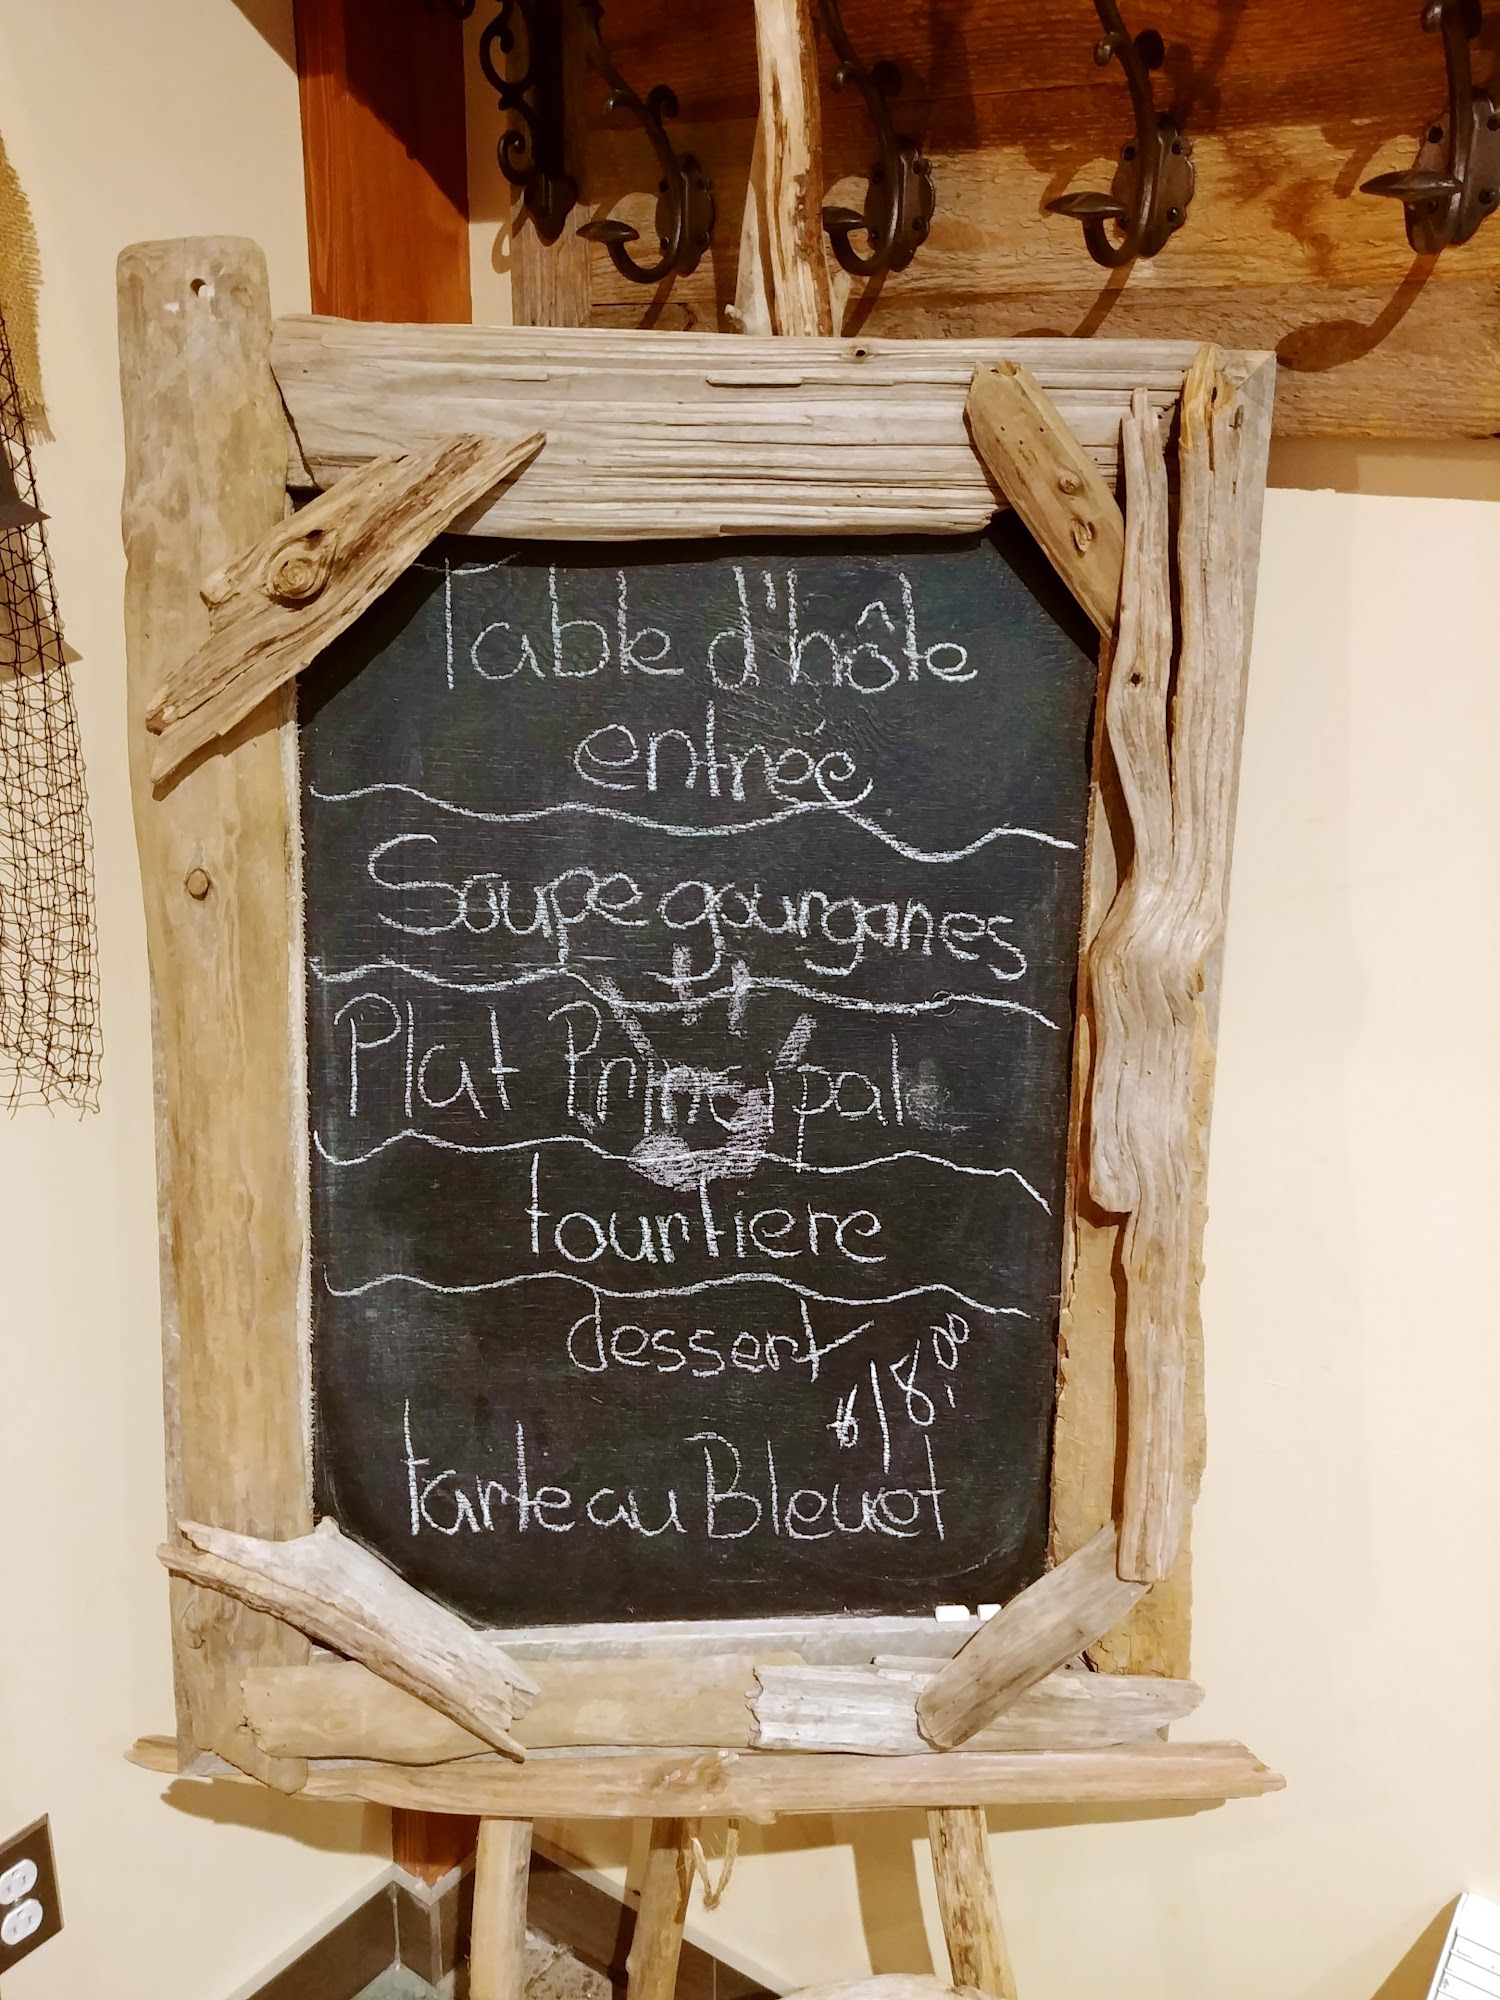 Table d'hôte
entrée
Soupe gourganes
Plat Principal
tourtiere
dessert
$18.00
tarte au Bleuet